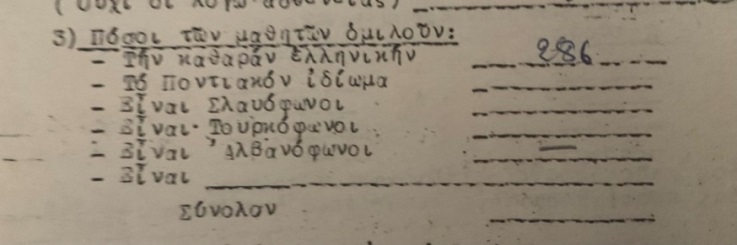 (Οὐχὶ οἱ λόγῳ ἀσθενείας)
3) Πόσοι τῶν μαθητῶν ὁμιλοῦν:
- Τήν καθαράν ἑλληνικήν 286
- Τό Ποντιακόν ἰδίωμα
- Εἶναι Σλαυόφωνοι
- Εἶναι Τουρκόφωνοι
- Εἶναι Ἀλβανόφωνοι —
- Εἶναι
Σύνολον